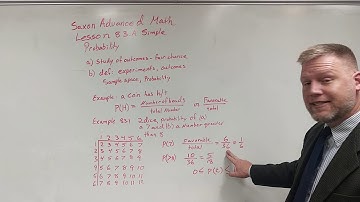 Saxon Advanced Math
Lesson 83.A Simple
Probability
a) Study of outcomes - fair chance
b) def: experiments, outcomes
sample space, Probability
Example: a coin has h/t
P(H) = number of heads / total number or Favorable / total
Example 83.1 2 dice, probability of (a)
= 7 and (b) a number greater
than 8.
1 2 3 4 5 6
1 2 3 4 5 6 7
2 3 4 5 6 7 8
3 4 5 6 7 8 9
4 5 6 7 8 9 10
5 6 7 8 9 10 11
6 7 8 9 10 11 12
P(7) Favorable / total = 6/36 = 1/6
P(>8) 10/36 = 5/18
0 ≤ P(E) ≤